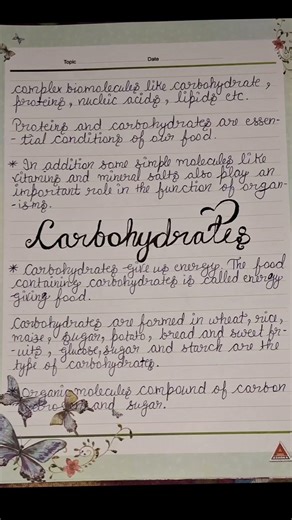 Topic Date
complex biomolecules like carbohydrate,
proteins, nucleic acids, lipids etc.
Proteins and carbohydrates are essen-
-tial conditions of our food.
* In addition some simple molecules like
vitamins and mineral salts also play an
important role in the function of organ-
-isms.
Carbohydrates
* Carbohydrates give up energy. The food
containing carbohydrates is called energy
giving food.
Carbohydrates are formed in wheat, rice,
maize, sugar, potato, bread and sweet fr-
-uits, glucose, sugar and starch are the
type of carbohydrates.
Organic molecules compound of carbon
and sugar.